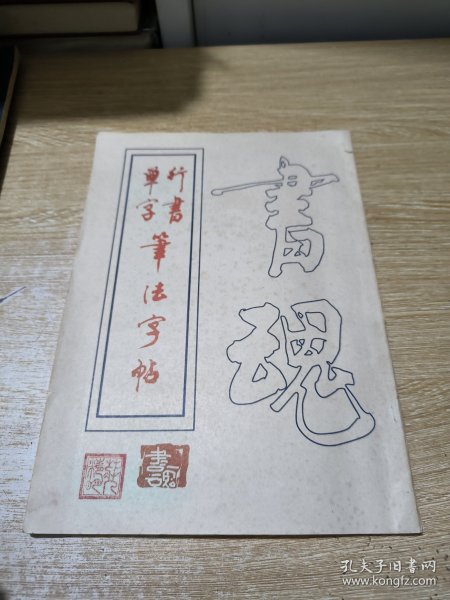 書魂
行書
單字
筆法字帖
書魂
孔夫子旧书网
www.kongfz.com